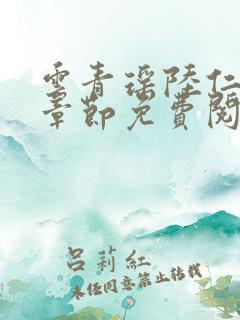 云青瑶陆仁
章节免费阅
吕莉红
未经同意禁止转载